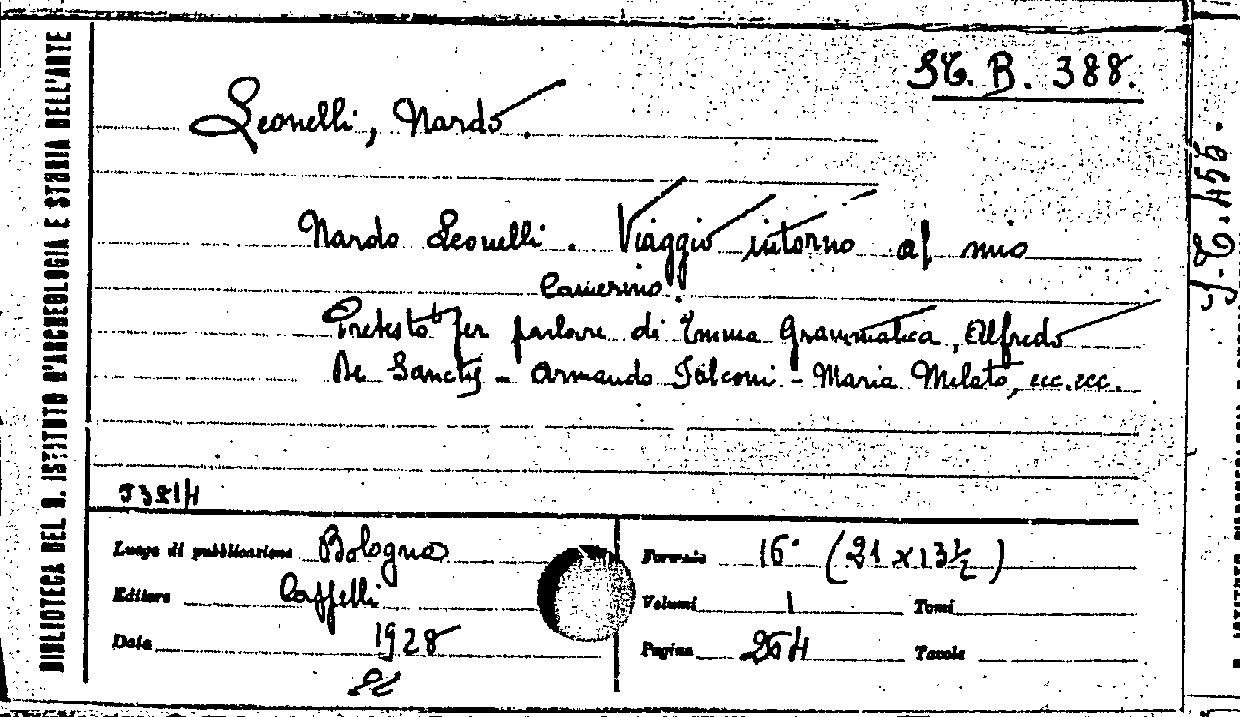 ST. B. 388.
Leonelli, Nardo.
Nardo Leonelli. Viaggio intorno al mio
Camerino.
Pretesto per parlare di Emma Grammatica, Alfredo
De Sanctis - Armando Falconi - Maria Melato, ecc. ecc.
Luogo di pubblicazione Bologna
Editore Caffelli
Data 1928
Formato 16° (21 x 13½)
Volumi 1 Tomi
Pagine 254 Tavole
BIBLIOTECA DEL R. ISTITUTO D'ARCHEOLOGIA E STORIA DELL'ARTE